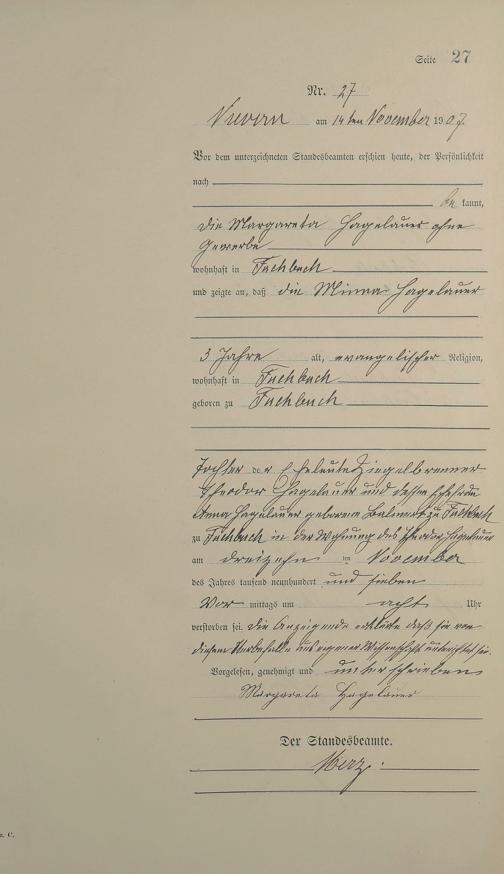 Seite 27
Nr. 27
Nievern am 14ten November 1907.
Vor dem unterzeichneten Standesbeamten erschien heute, der Persönlichkeit
nach
be kannt,
die Margareta Hagelauer ohne
Gewerbe
wohnhaft in Fachbach
und zeigte an, daß die Minna Hagelauer
3 Jahre alt, evangelischer Religion,
wohnhaft in Fachbach
geboren zu Fachbach
Tochter der Eheleute Ziegelbrenner
Theodor Hagelauer und dessen Ehefrau
Anna Hagelauer geborene zu Fachbach
zu Fachbach in der Wohnung des Theodor Hagelauer
am dreizehn ten November
des Jahres tausend neunhundert und sieben
Vor mittags um acht Uhr
verstorben sei. Die Anzeigende erklärte daß sie von
diesem Sterbefalle aus eigener Wissenschaft unterrichtet sei.
Vorgelesen, genehmigt und unterschrieben
Margareta Hagelauer
Der Standesbeamte.
Merz.
C.